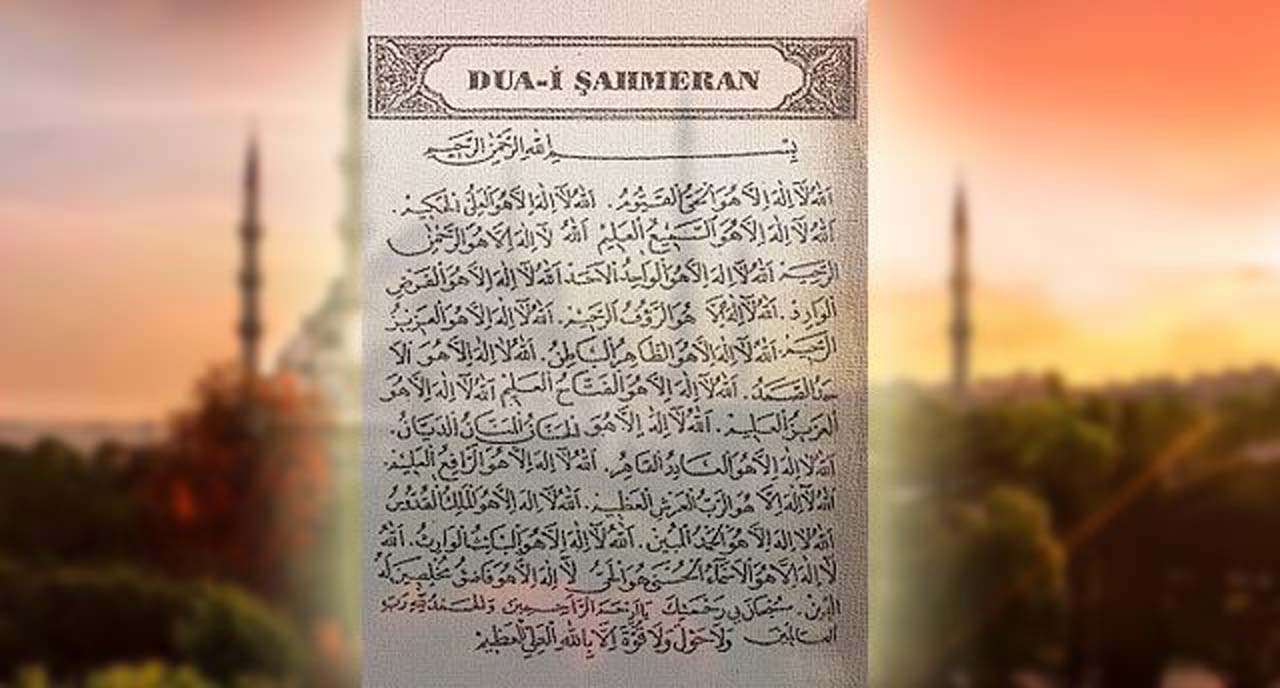 DUA-İ ŞAHMERAN
بِسْمِ اللهِ الرَّحْمٰنِ الرَّحِيمِ
اَللهُ لَا اِلٰهَ اِلَّا هُوَ الْحَيُّ الْقَيُّومُ . اَللهُ لَا اِلٰهَ اِلَّا هُوَ الْعَلِيُّ الْحَكِيمُ .
اَللهُ لَا اِلٰهَ اِلَّا هُوَ السَّمِيعُ الْعَلِيمُ اَللهُ لَا اِلٰهَ اِلَّا هُوَ الرَّحْمٰنُ
الرَّحِيمُ اَللهُ لَا اِلٰهَ اِلَّا هُوَ الْوَاحِدُ الْاَحَدُ اَللهُ لَا اِلٰهَ اِلَّا هُوَ
اَللهُ لَا اِلٰهَ اِلَّا هُوَ الرَّؤُفُ الرَّحِيمُ . اَللهُ لَا اِلٰهَ اِلَّا هُوَ الْعَزِيزُ
الرَّحِيمُ . اَللهُ لَا اِلٰهَ اِلَّا هُوَ الظَّاهِرُ الْبَاطِنُ . اَللهُ لَا اِلٰهَ اِلَّا هُوَ الْاَ
حَدُ الصَّمَدُ . اَللهُ لَا اِلٰهَ اِلَّا هُوَ الْفَتَّاحُ الْعَلِيمُ اَللهُ لَا اِلٰهَ اِلَّا هُوَ
الْعَزِيزُ الْعَلِيمُ . اَللهُ لَا اِلٰهَ اِلَّا هُوَ الْحَنَّانُ الْمَنَّانُ الدَّيَّانُ .
اَللهُ لَا اِلٰهَ اِلَّا هُوَ الْقَاهِرُ . اَللهُ لَا اِلٰهَ اِلَّا هُوَ الرَّافِعُ
اَللهُ لَا اِلٰهَ اِلَّا هُوَ الرَّبُّ الْعَرْشِ الْعَظِيمِ . اَللهُ لَا اِلٰهَ اِلَّا هُوَ الْمَلِكُ الْقُدُّوسُ
اَللهُ لَا اِلٰهَ اِلَّا هُوَ الْمُبِينُ . اَللهُ لَا اِلٰهَ اِلَّا هُوَ الْوَارِثُ . اَللهُ
لَا اِلٰهَ اِلَّا هُوَ الْاَسْمَاءُ الْحُسْنٰى هُوَ الْحَيُّ لَا اِلٰهَ اِلَّا هُوَ مُخْلِصِينَ لَهُ
الدِّينَ . بِرَحْمَتِكَ يَا اَرْحَمَ الرَّاحِمِينَ وَالْحَمْدُ لِلّٰهِ رَبِّ
الْعَالَمِينَ وَلَا حَوْلَ وَلَا قُوَّةَ اِلَّا بِاللهِ الْعَلِيِّ الْعَظِيمِ